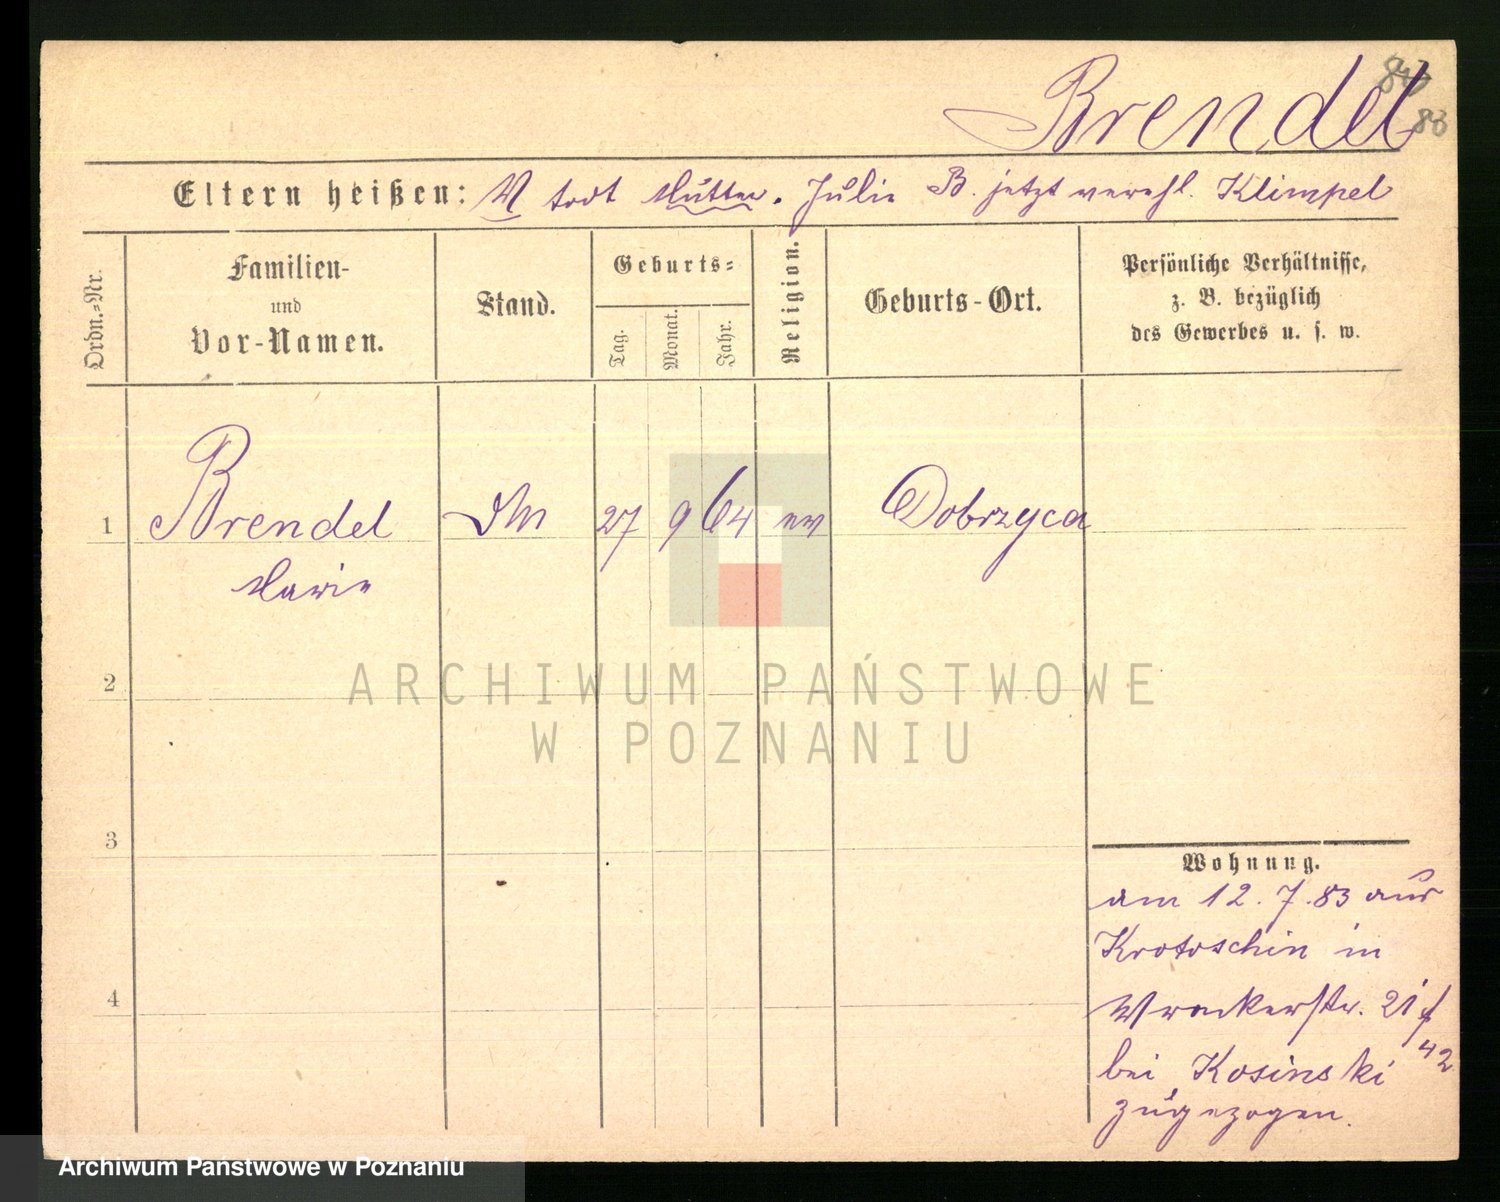 Brendel
83
Eltern heißen: V todt Mutter. Julie B. jetzt verehl. Klimpel
Ordn.-Nr.
Familien-
und
Vor-Namen.
Stand.
Geburts-
Tag.
Monat.
Jahr.
Religion.
Geburts-Ort.
Persönliche Verhältnisse,
z. B. bezüglich
des Gewerbes u. s. w.
1 Brendel 27 9 64 ev Dobrzyca
Marie
2
3
4
Wohnung.
am 12. 7. 83 aus
Krotoschin in
Wronkerstr. 21
42
bei Kosinski
zugezogen.
ARCHIWUM PAŃSTWOWE
W POZNANIU
Archiwum Państwowe w Poznaniu